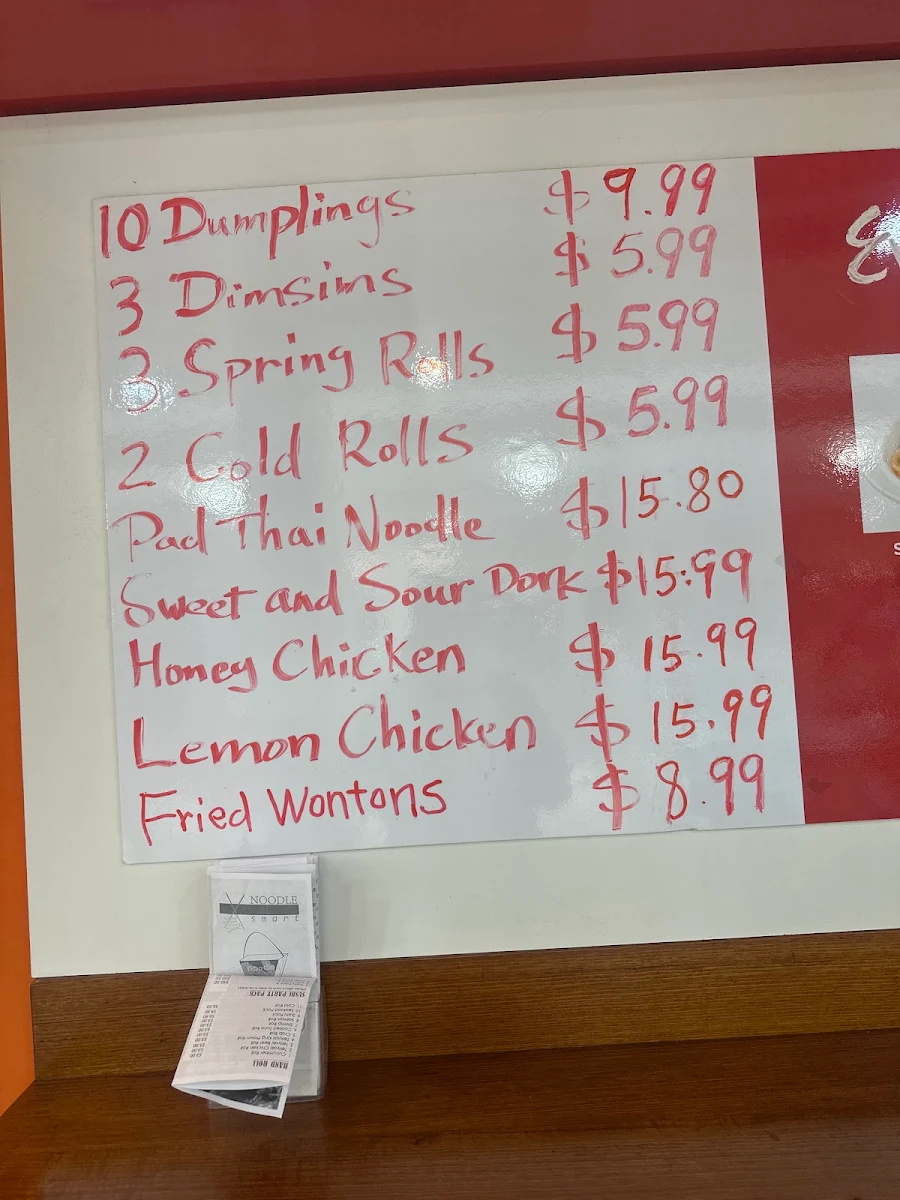 10 Dumplings $ 9.99
3 Dimsims $ 5.99
3 Spring Rolls $ 5.99
2 Cold Rolls $ 5.99
Pad Thai Noodle $15.80
Sweet and Sour Pork $15.99
Honey Chicken $ 15.99
Lemon Chicken $ 15.99
Fried Wontons $ 8.99
NOODLE
smart
SUSHI PARTY PACK
HAND ROLL